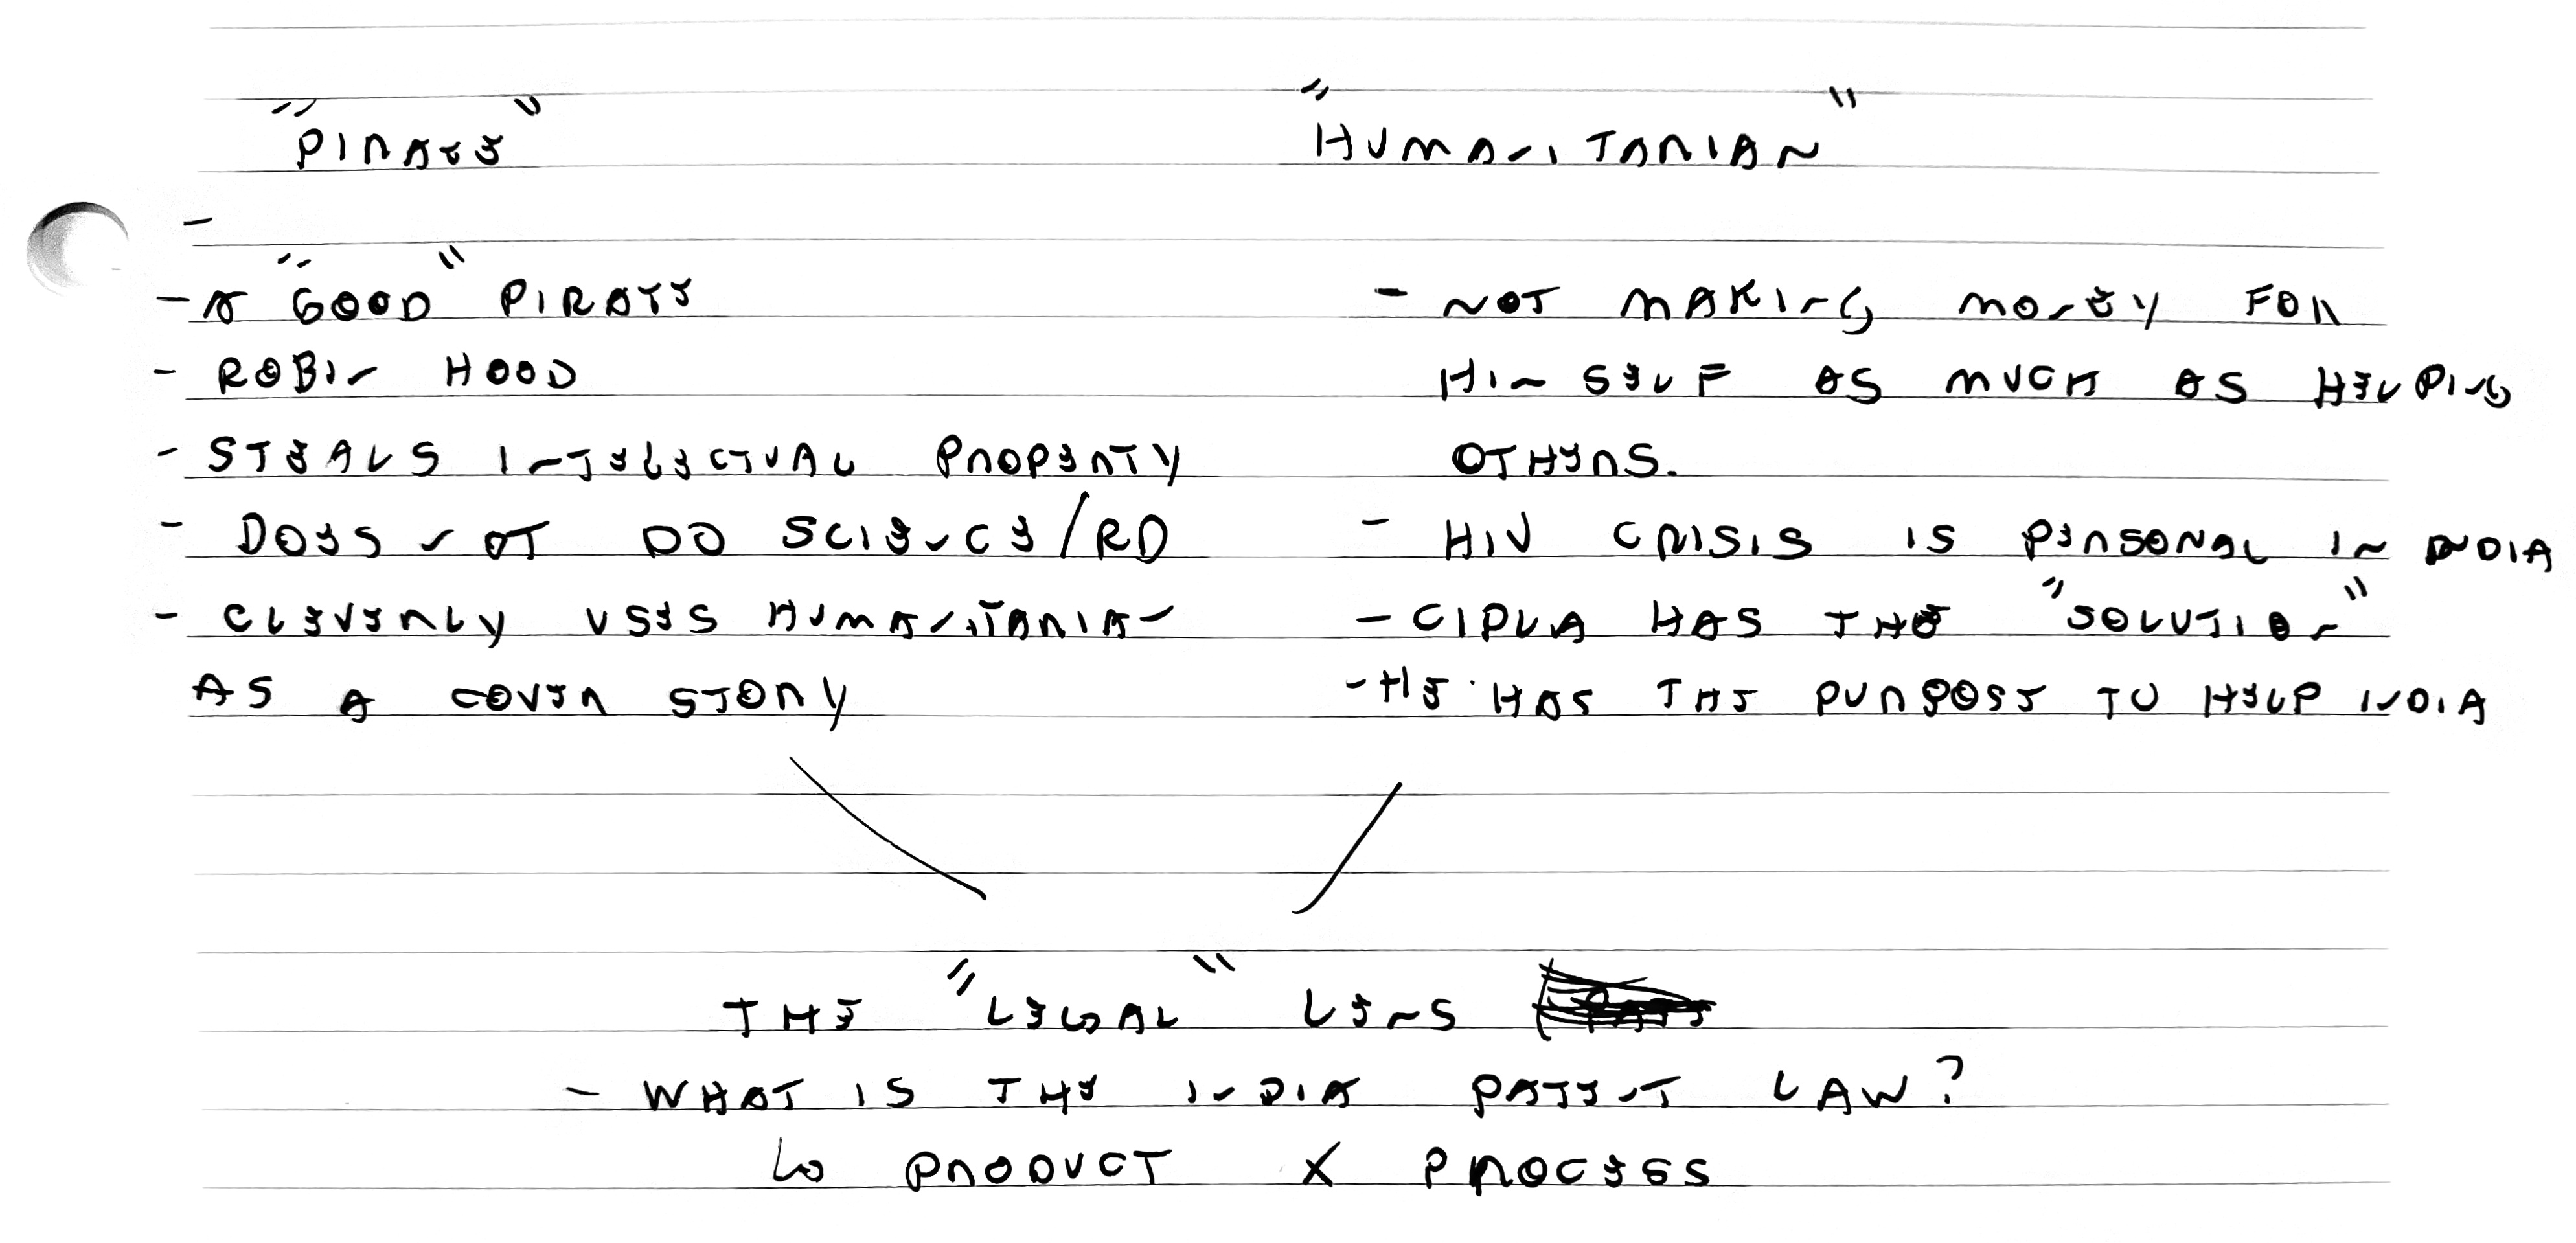 "PIRATE"
"HUMANITARIAN"
-
- A "GOOD" PIRATE
- ROBIN HOOD
- STEALS INTELECTUAL PROPERTY
- DOES NOT DO SCIENCE/RD
- CLEVERLY USES HUMANITARIAN
AS A COVER STORY
- NOT MAKING MONEY FOR
HIMSELF AS MUCH AS HELPING
OTHERS.
- HIV CRISIS IS PERSONAL IN INDIA
- CIPLA HAS THE "SOLUTION"
- HE HAS THE PURPOSE TO HELP INDIA
THE "LEGAL" LENS
- WHAT IS THE INDIA PATENT LAW?
↳ PRODUCT X PROCESS